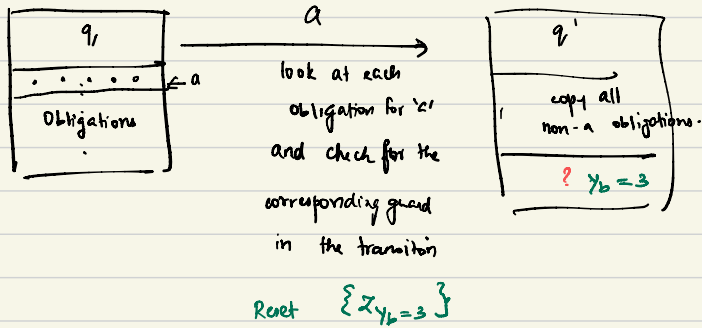 q,
a
q'
← a
Obligations
look at each
obligation for 'a'
and check for the
corresponding guard
in the transiton
copy all
non-a obligations.
? y_b = 3
Reset { z_{y_b = 3} }